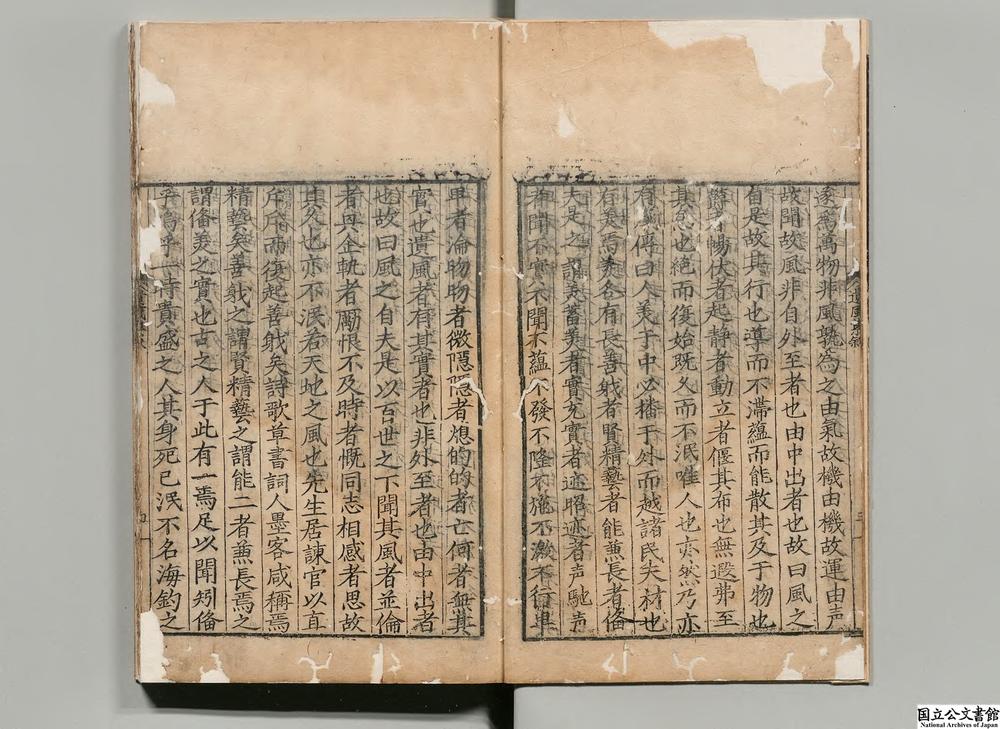 遂為萬物非風孰為之由氣故機由機故運由声
故聞故風非自外至者也由中出者也故曰風之
自是故其行也導而不滯蘊而能散其及于物也
欝者暢伏者起静者動立者偃其布也無遐弗至
其息也絶而復始既久而不泯唯人也亦然乃亦
有 傳曰人美于中必播于外而越諸民夫材也
存美焉美各有長善戢者賢精藝者能兼長者俻
夫是之謂美蓄美者實充實者迹昭迹者声馳声
者聞不實不聞不蘊不發不隆不施不激不行卑
卑者淪昒昒者微隱隱者熄的的者亡何者無其
實也遺風者有其實者也非外至者也由中出者
也故曰風之自夫是以百世之下聞其風者並倫
者興企軌者勵恨不及時者慨同志相感者思故
其久也亦不泯若天地之風也先生居諫官以直
斥斥而復起善戢矣詩歌草書詞人墨客咸稱焉
精藝矣善戢之謂賢精藝之謂能二者兼長焉之
謂俻美之實也古之人于此有一焉足以聞矧俻
乎為 一時貴盛之人其身死已泯不名海釣之
国立公文書館
National Archives of Japan